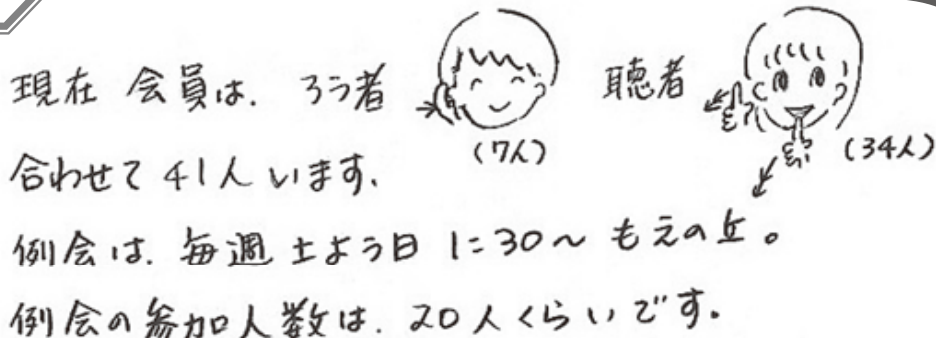 現在 会員は、ろう者 (7人) 聴者 (34人)
合わせて 41人 います。
例会は、毎週 土よう日 1:30～ もえの丘。
例会の参加人数は、20人くらいです。